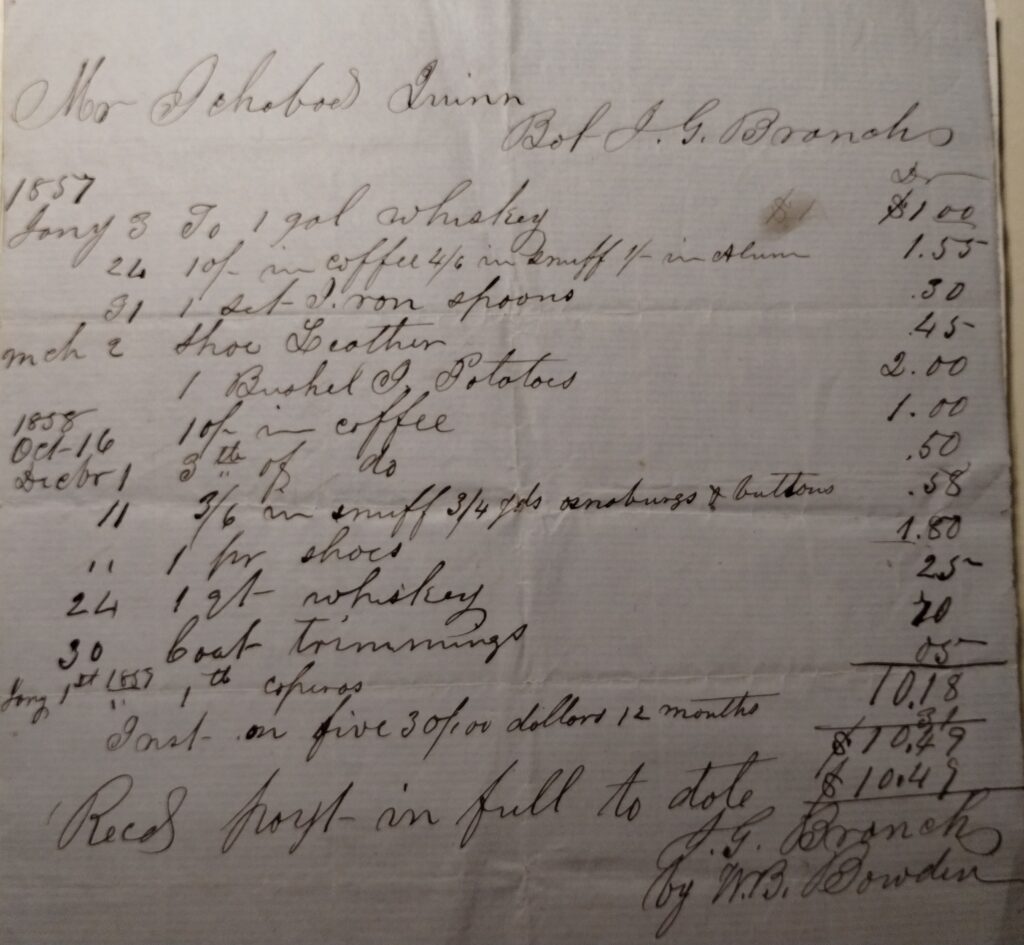 Mr Ichabod Quinn
Bot J. G. Branch
Dr
1857
Jany 3 To 1 gal whiskey $1 $1 00
24 10/- in coffee 4/6 in snuff 1/- in Alum 1.55
31 1 set I.ron spoons .30
Mch 2 Shoe Leather .45
1 Bushel I. Potatoes 2.00
1858
Oct-16 10/- in coffee 1.00
Decbr 1 3 lb of do .50
11 3/6 in snuff 3/4 yds osnaburgs & buttons .58
" 1 pr shoes 1.80
24 1 qt whiskey 25
30 Coat trimmings 70
Jany 1st 1859 1 lb coperas 05
10.18
Inst on five 30/100 dollars 12 months 31
$10.49
$10.49
Recd payt in full to date
J. G. Branch
by W.B. Bowden